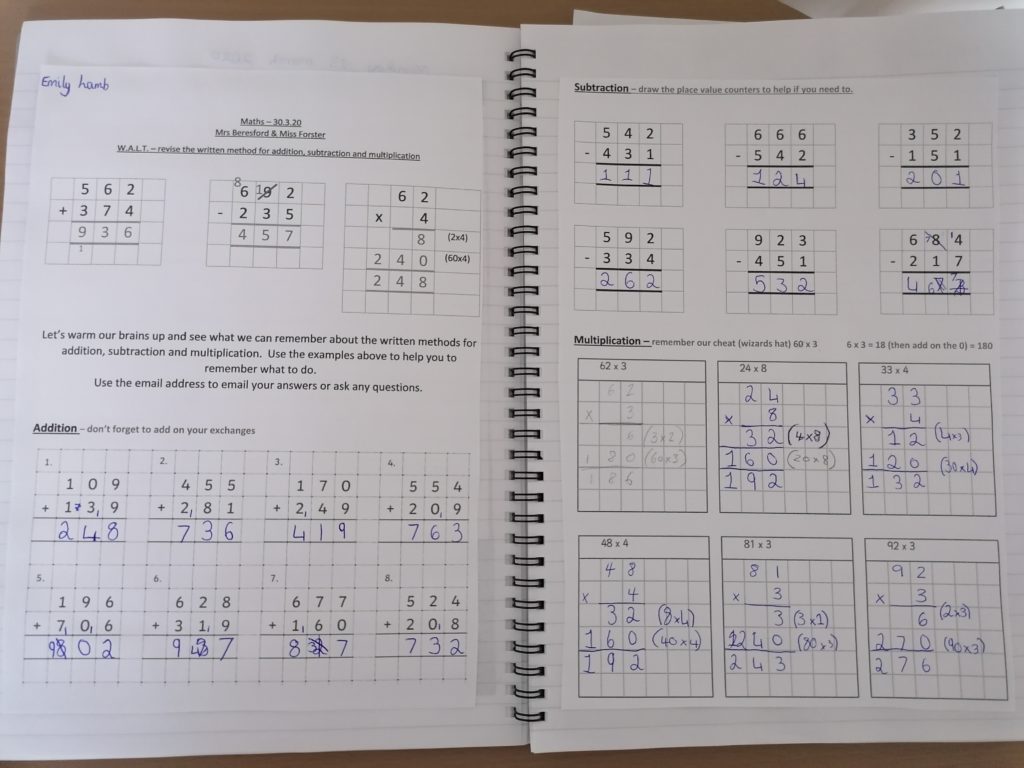 Emily Lamb
Maths – 30.3.20
Mrs Beresford & Miss Forster
W.A.L.T. – revise the written method for addition, subtraction and multiplication
5 6 2
+ 3 7 4
9 3 6
1
8 1
6 9 2
- 2 3 5
4 5 7
6 2
x 4
8 (2x4)
2 4 0 (60x4)
2 4 8
Let's warm our brains up and see what we can remember about the written methods for
addition, subtraction and multiplication. Use the examples above to help you to
remember what to do.
Use the email address to email your answers or ask any questions.
Addition – don't forget to add on your exchanges
1.
1 0 9
+ 1 3, 9
2 4 8
2.
4 5 5
+ 2, 8 1
7 3 6
3.
1 7 0
+ 2, 4 9
4 1 9
4.
5 5 4
+ 2 0, 9
7 6 3
5.
1 9 6
+ 7, 0, 6
9 0 2
6.
6 2 8
+ 3 1, 9
9 4 7
7.
6 7 7
+ 1, 6 0
8 3 7
8.
5 2 4
+ 2 0, 8
7 3 2
Subtraction – draw the place value counters to help if you need to.
5 4 2
- 4 3 1
1 1 1
6 6 6
- 5 4 2
1 2 4
3 5 2
- 1 5 1
2 0 1
5 9 2
- 3 3 4
2 6 2
9 2 3
- 4 5 1
5 3 2
6 8 14
- 2 1 7
4 6 7
Multiplication – remember our cheat (wizards hat) 60 x 3 6 x 3 = 18 (then add on the 0) = 180
62 x 3
6 2
x 3
6 (3x2)
1 8 0 (60x3)
1 8 6
24 x 8
2 4
x 8
3 2 (4x8)
1 6 0 (20x8)
1 9 2
33 x 4
3 3
x 4
1 2 (4x3)
1 2 0 (30x4)
1 3 2
48 x 4
4 8
x 4
3 2 (8x4)
1 6 0 (40x4)
1 9 2
81 x 3
8 1
x 3
3 (3x1)
2 4 0 (80x3)
2 4 3
92 x 3
9 2
x 3
6 (2x3)
2 7 0 (90x3)
2 7 6